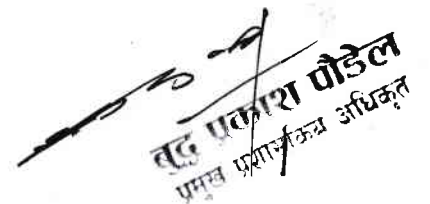 बुद्ध प्रकाश पौडेल
प्रमुख प्रशासकिय अधिकृत